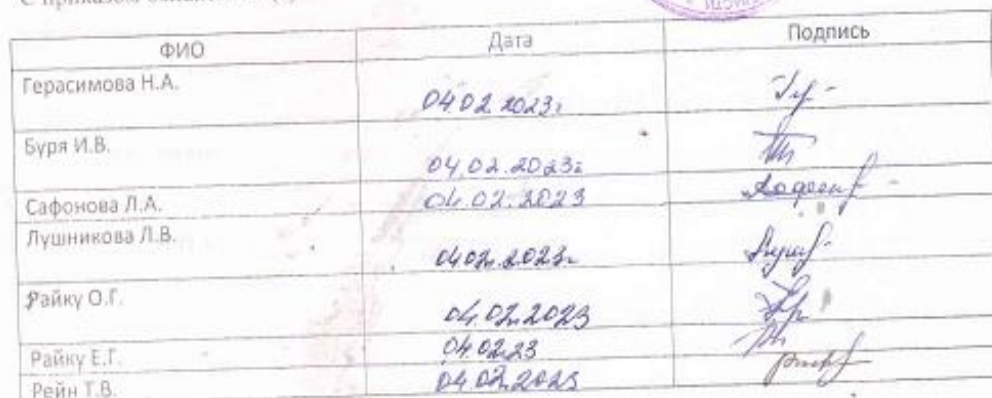 С приказом
ФИО Дата Подпись
Герасимова Н.А. 04.02.2023г
Буря И.В. 04.02.2023г
Сафонова Л.А. 04.02.2023
Лушникова Л.В. 04.02.2023г
Райку О.Г. 04.02.2023
Райку Е.Г. 04.02.23
Рейн Т.В. 04.02.2023